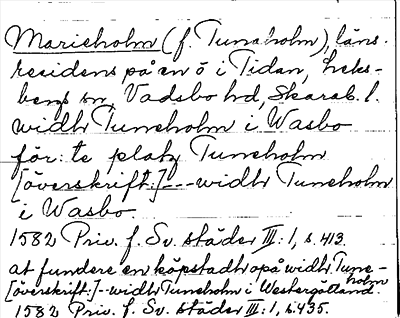 Marieholm (f. Tunaholm), läns-
residens på en ö i Tidan, Leks-
bergs sn, Vadsbo hd, Skarab. l.
widhr Tuneholm i Wasbo
för:te platz Tuneholm
[överskrift:]---widhr Tuneholm
i Wasbo.
1582 Priv. f. Sv. städer III:1, s. 413.
at fundere en köpstadh opå widhr Tune-
holm
[överskrift:]--widhr Tuneholm i Westergötland.
1582 Priv. f. Sv. städer III:1, s. 435.